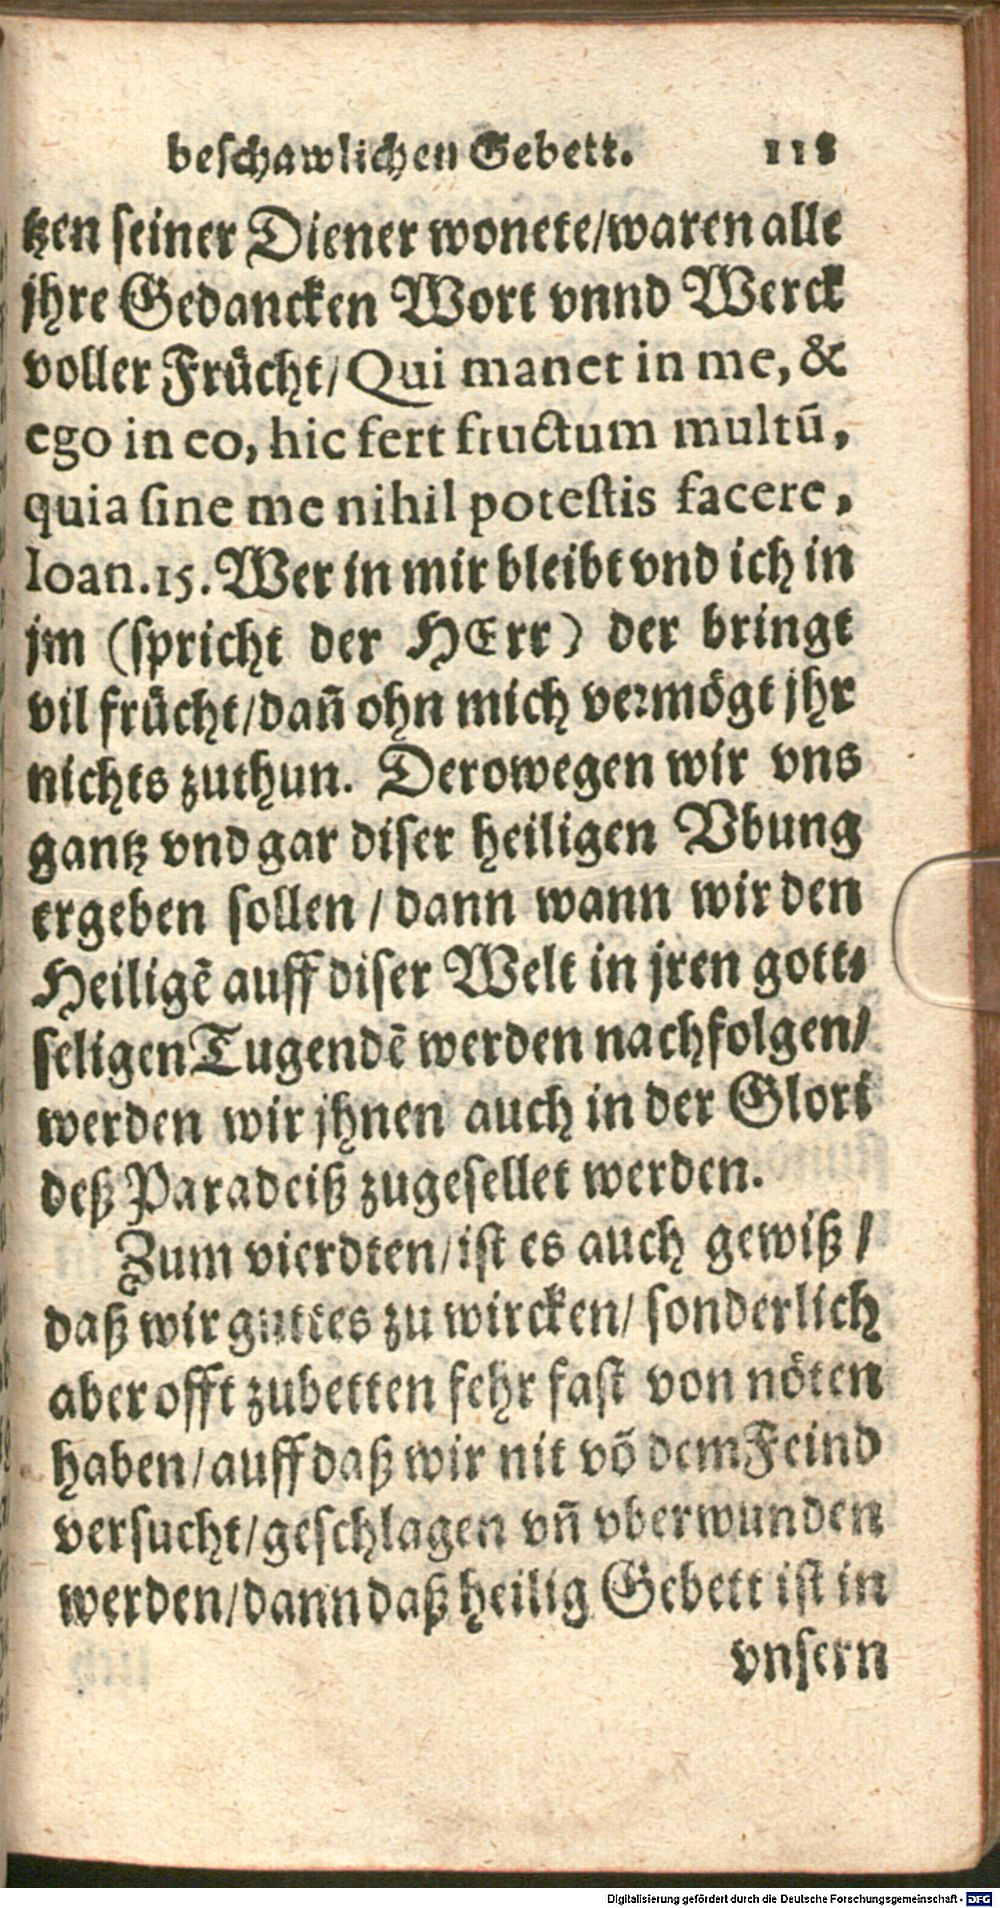 beschawlichen Gebett. 118
tzen seiner Diener wonete/waren alle
jhre Gedancken Wort vnnd Werck
voller Frücht/Qui manet in me, &
ego in eo, hic fert fructum multū,
quia sine me nihil potestis facere,
Ioan.15. Wer in mir bleibt vnd ich in
jm (spricht der HErr) der bringt
vil frücht/dañ ohn mich vermögt jhr
nichts zuthun. Derowegen wir vns
gantz vnd gar diser heiligen Vbung
ergeben sollen / dann wann wir den
Heiligē auff diser Welt in jren gott⸗
seligen Tugendē werden nachfolgen/
werden wir jhnen auch in der Glori
deß Paradeiß zugesellet werden.
Zum vierdten/ist es auch gewiß /
daß wir guttes zu wircken/ sonderlich
aber offt zubetten sehr fast von nöten
haben/auff daß wir nit võ dem Feind
versucht/geschlagen vñ vberwunden
werden/dann daß heilig Gebett ist in
vnsern
Digitalisierung gefördert durch die Deutsche Forschungsgemeinschaft - DFG